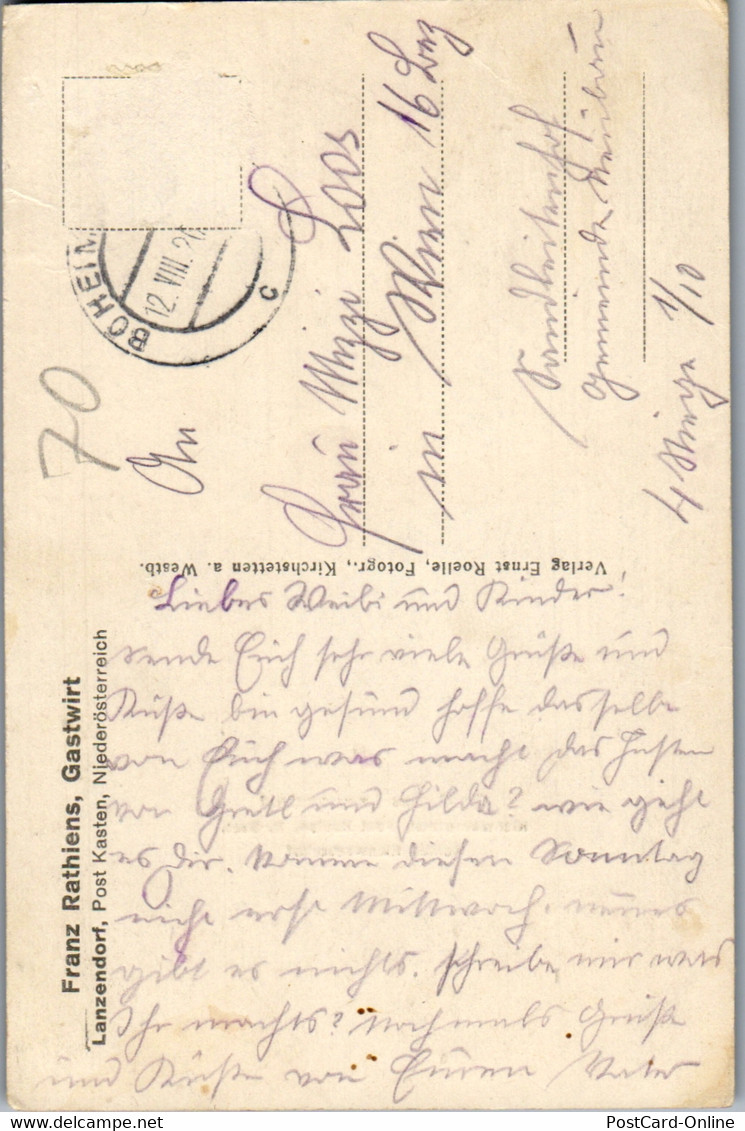 Franz Rathiens, Gastwirt
Lanzendorf, Post Kasten, Niederösterreich
Verlag Ernst Roelle, Fotogr., Kirchstetten a. Westb.
BÖHEIM
12. VIII. 2
c
70
An
Frau Mizzi Loos
in Wien 16 Bez
Sandleitenhof
Gemeinde Neubau
4 Stiege 1/10
Liebes Weibi und Kinder!
sende Euch sehr viele Grüße und
Küße bin gesund hoffe dasselbe
von Euch was macht das Husten
von Gretl und Hilda? wie geht
es Dir. Komme diesen Sonntag
nicht erst Mittwoch. neues
gibt es nichts. schreibe mir was
Ihr machts? Nochmals Grüße
und Küße von Euren Vater
PostCard-Online